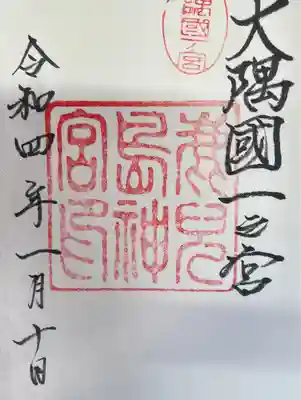 隅國一ノ宮
大隅國一之宮
鹿兒
島神
宮印
令和四年一月十日